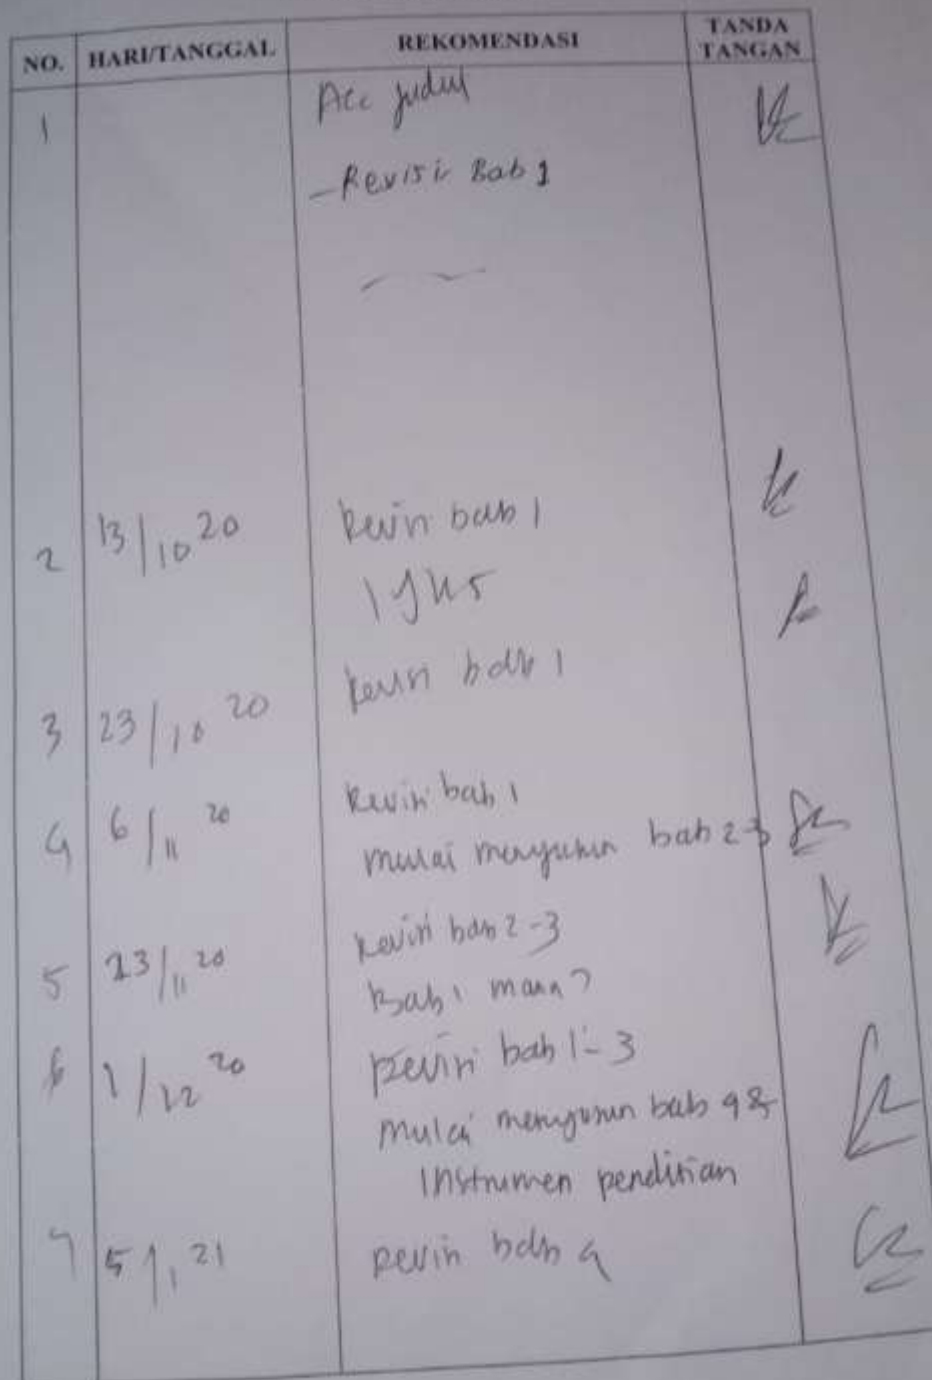 NO. HARI/TANGGAL REKOMENDASI TANDA TANGAN
1 Acc judul
- Revisi Bab 1
2 13/10 20 Revisi bab 1
3 23/10 20 Revisi bab 1
4 6/11 20 Revisi bab 1
mulai menyusun bab 2-3
5 23/11 20 Revisi bab 2-3
Bab 1 mana?
6 1/12 20 Revisi bab 1-3
mulai menyusun bab 4 &
Instrumen penelitian
7 5/1 21 Revisi bab 4